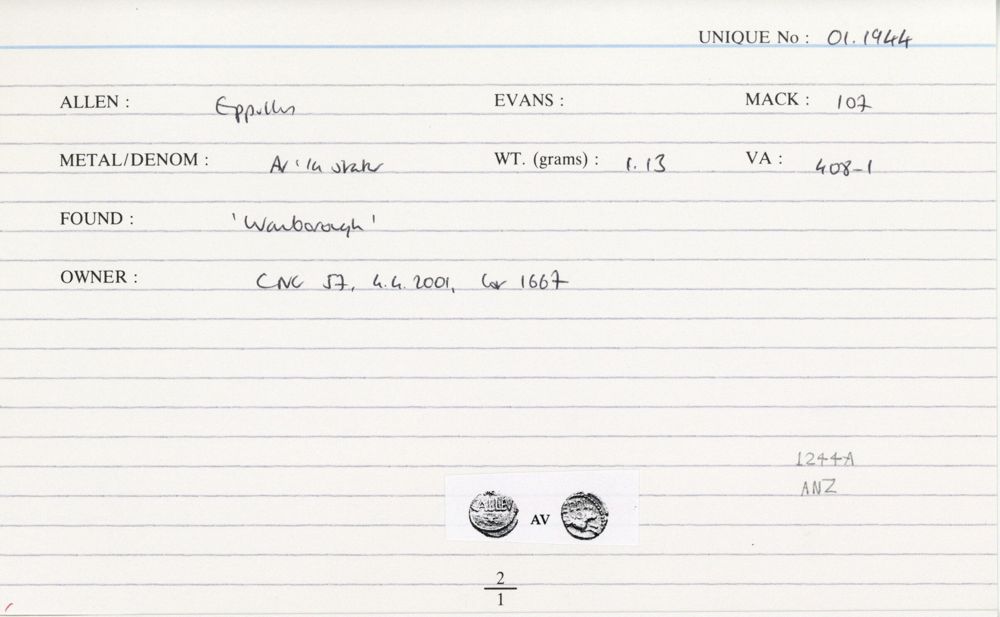 UNIQUE No : 01.1944
ALLEN : Eppillus EVANS : MACK : 107
METAL/DENOM : AV 1/4 stater WT. (grams) : 1.13 VA : 408-1
FOUND : 'Wanborough'
OWNER : CNG 57, 4.4.2001, lot 1667
1244A
ANZ
CALLEV AV
2
1